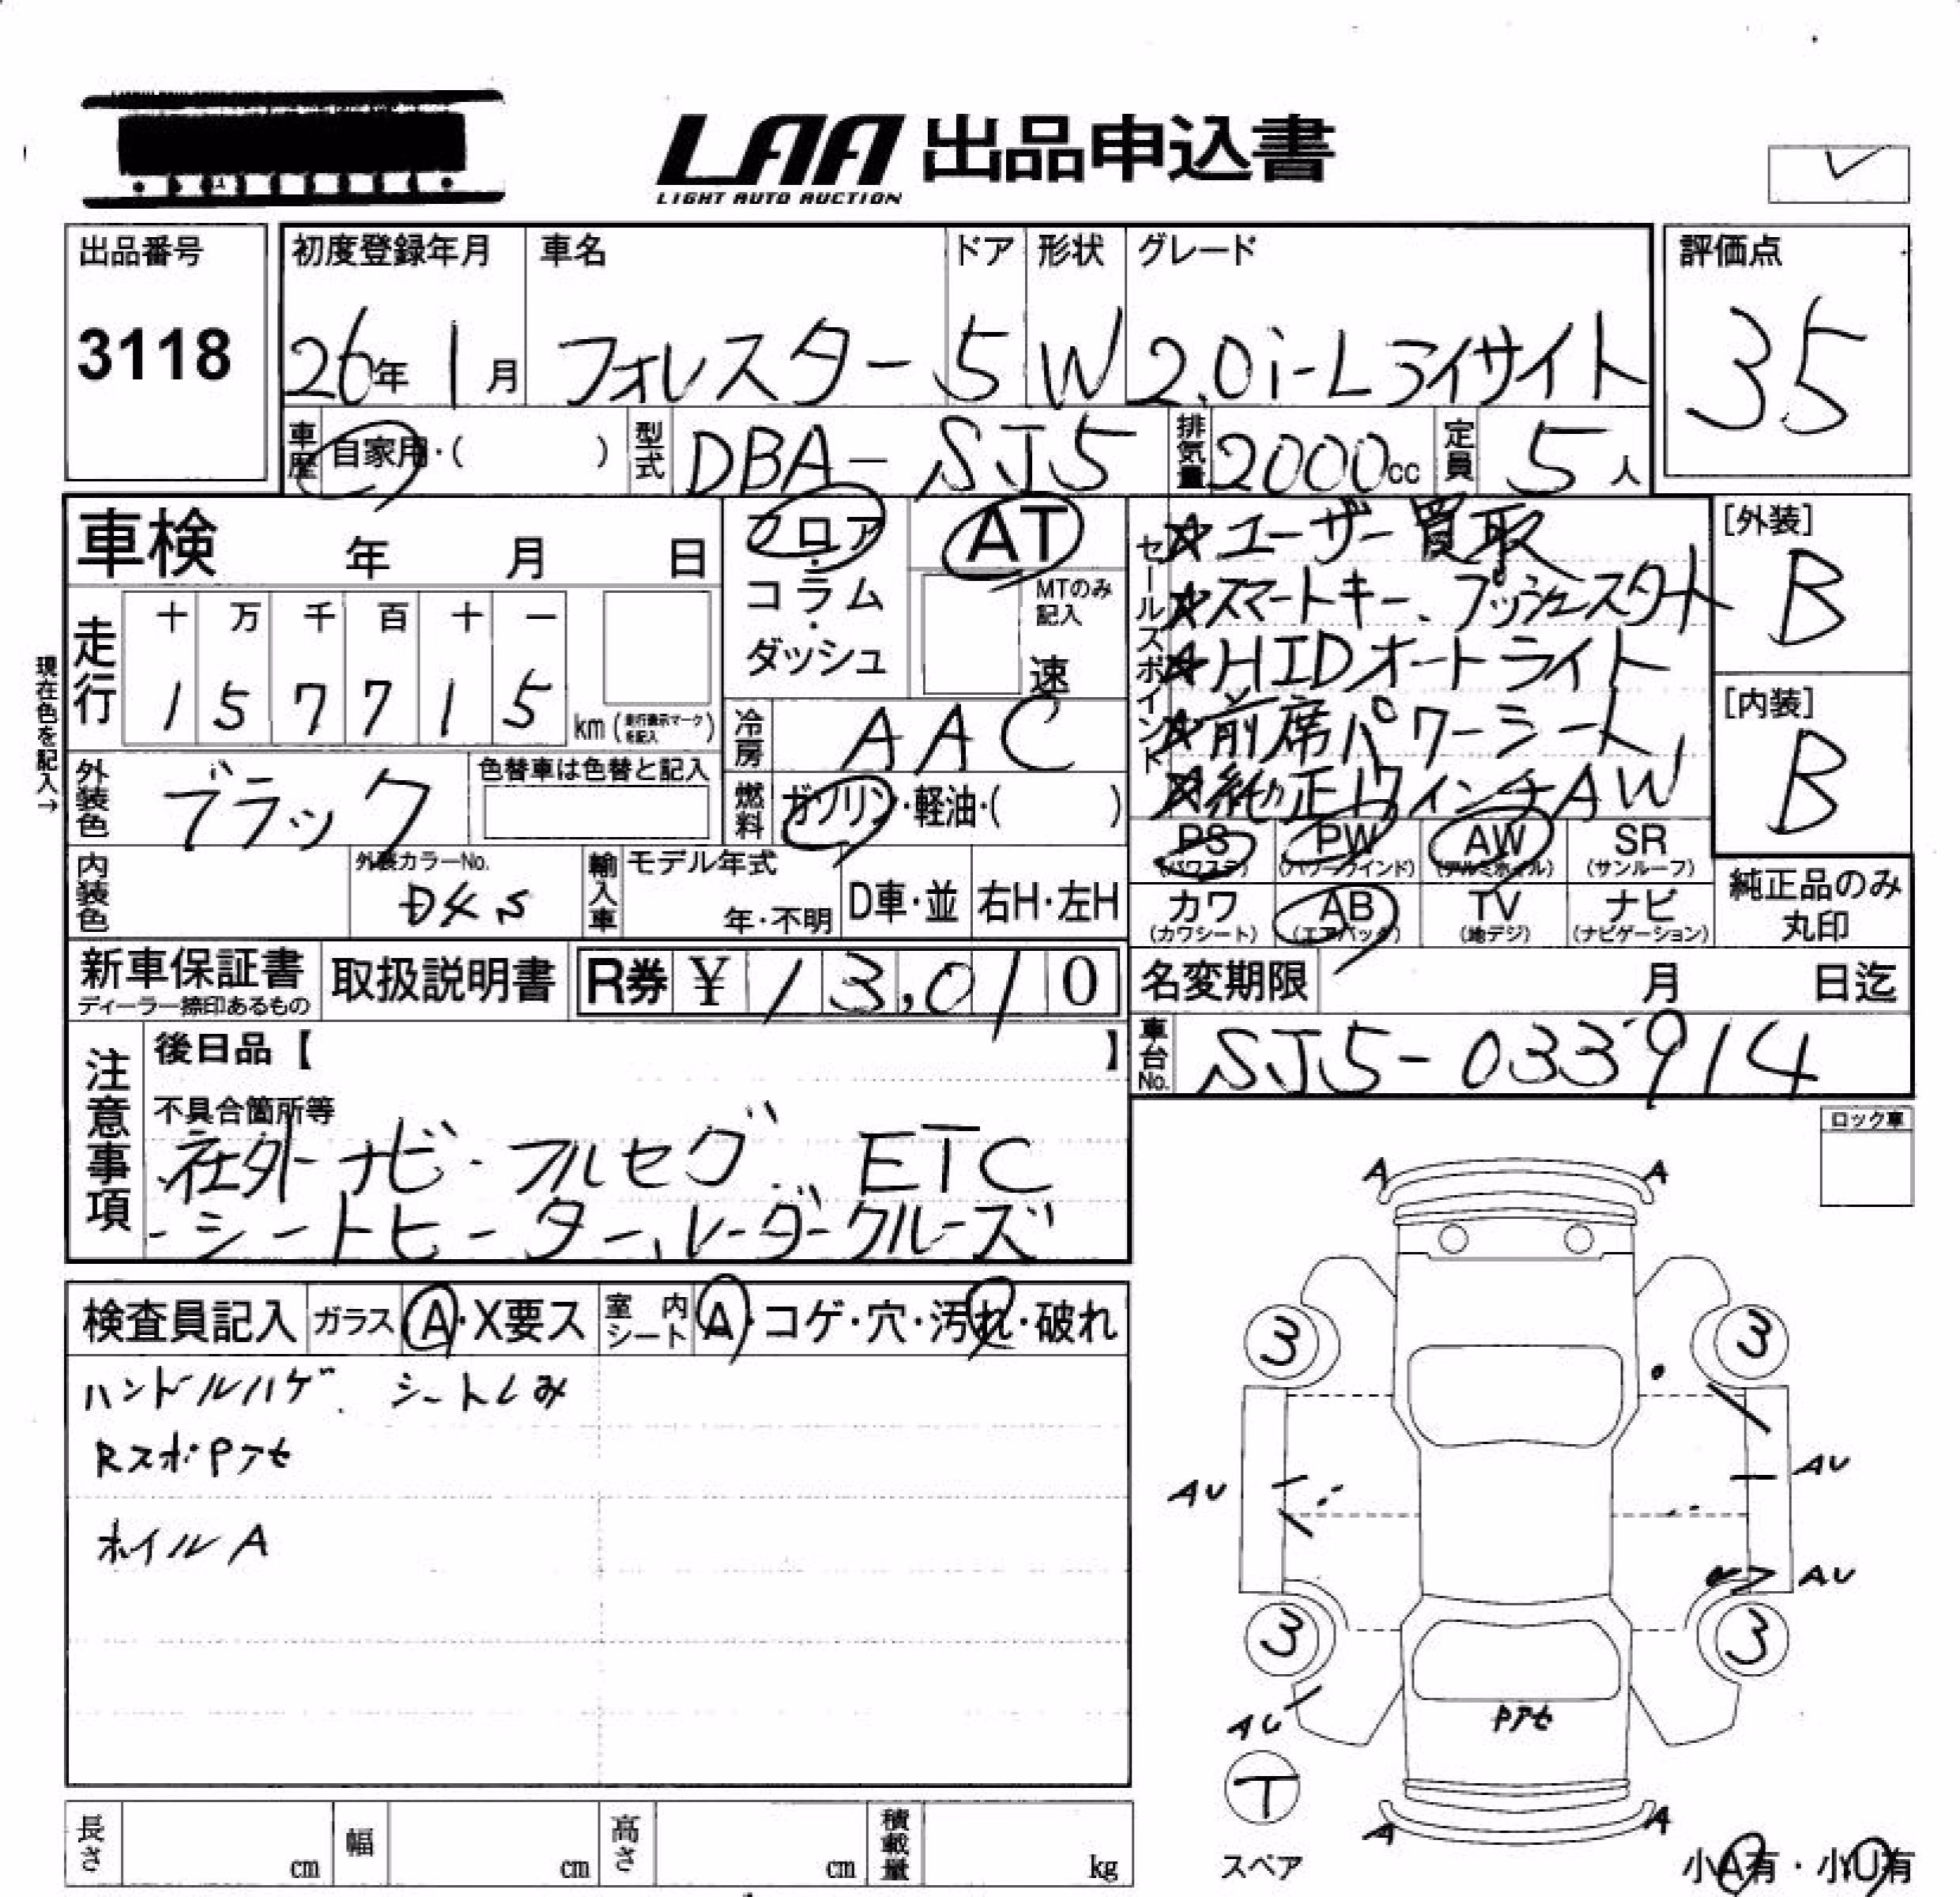 LAA 出品申込書
LIGHT AUTO AUCTION
出品番号 初度登録年月 車名 ドア 形状 グレード 評価点
3118 26年 1月 フォレスター 5 W 2.0i-L アイサイト 35
車歴 自家用・( ) 型式 DBA-SJ5 排気量 2000cc 定員 5人
車検 年 月 日
フロア・コラム・ダッシュ
AT
MTのみ記入
速
セールスポイント
☆ユーザー買取
☆スマートキー、プッシュスタート
☆HIDオートライト
☆前席パワーシート
☆純正17インチAW
[外装]
B
[内装]
B
現在色を記入→
走行 十 万 千 百 十 一
1 5 7 7 1 5 km (走行表示マークを記入)
冷房 AAC
外装色 ブラック 色替車は色替と記入
燃料 ガソリン・軽油・( )
PS (パワステ) PW (パワーウインド) AW (アルミホイル) SR (サンルーフ)
カワ (カワシート) AB (エアバッグ) TV (地デジ) ナビ (ナビゲーション)
純正品のみ
丸印
内装色 外装カラーNo. D4S 輸入車 モデル年式 年・不明 D車・並 右H・左H
新車保証書 ディーラー捺印あるもの 取扱説明書 R券 ¥ 13,010
名変期限 月 日迄
車台No. SJ5-033914
注意事項
後日品【 】
不具合箇所等
社外ナビ・フルセグ、ETC
・シートヒーター、レーダークルーズ
ロック車
検査員記入 ガラス A・X要ス 室内シート A・コゲ・穴・汚れ・破れ
ハンドルハゲ、シートしみ
RスポPアセ
ホイルA
A A
3 3
AU AU
AU
3 3
AU
Pアセ
T
スペア
A A
小A有・小U有
長さ cm 幅 cm 高さ cm 積載量 kg